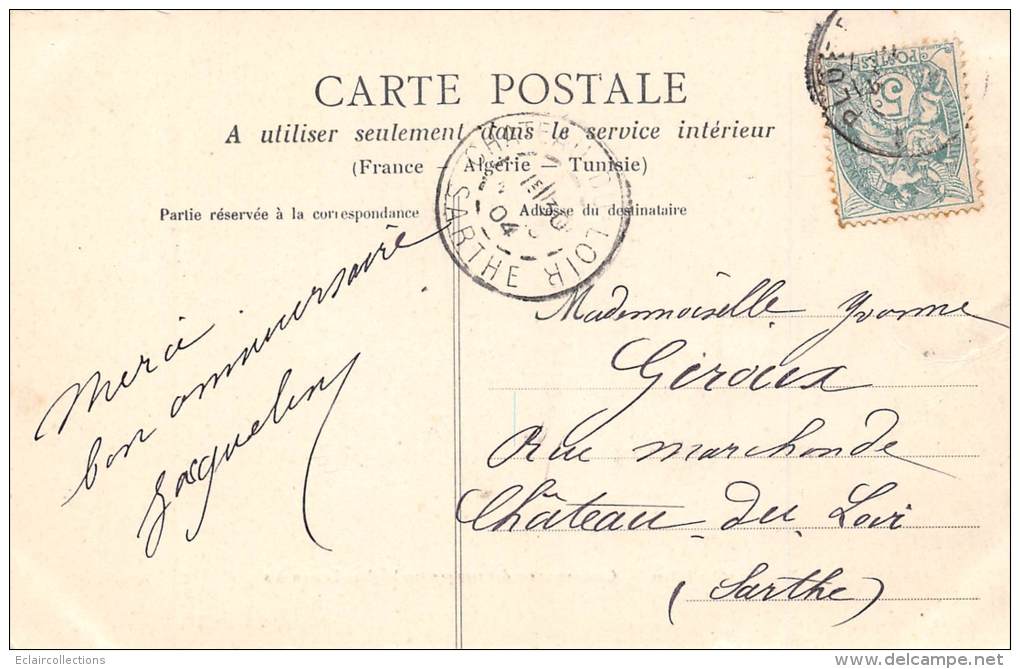 CARTE POSTALE
A utiliser seulement dans le service intérieur
(France – Algérie – Tunisie)
Partie réservée à la correspondance
Adresse du destinataire
CHATEAU-DU-LOIR
SARTHE
04
POSTES
5
Merci
bon anniversaire
Jacqueline
Mademoiselle Yvonne
Giroux
Rue marchande
Château du Loir
(Sarthe)
Eclaircollections
delcampe.net